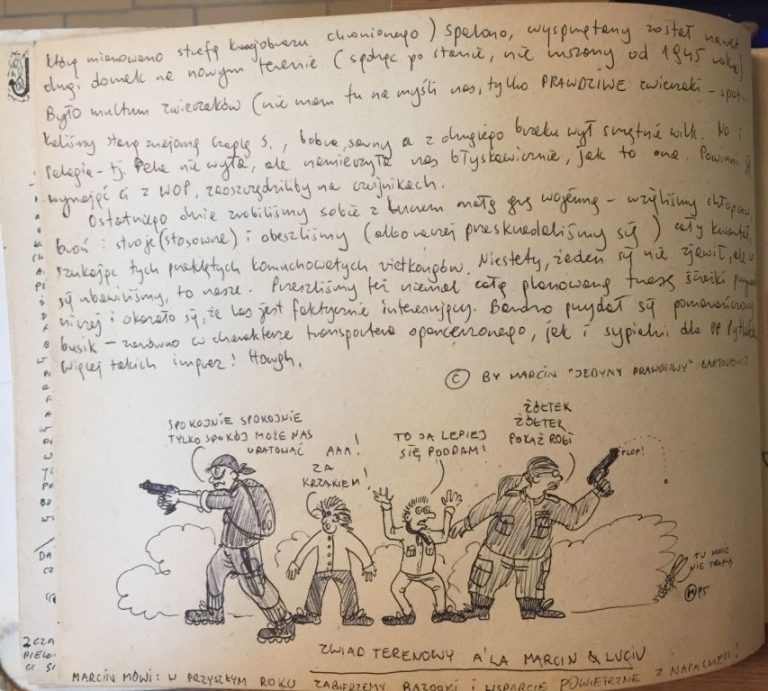 Którą mianowano strefą krajobrazu chronionego) spalono, wysprzątany został nawet
drugi domek na nowym terenie. (sądząc po stanie, nie ruszany od 1945 roku)
Było multum zwierzaków (nie mam tu na myśli nas, tylko PRAWDZIWE zwierzaki - spot-
kaliśmy starą znajomą czaplę S., bobra, sarny a z drugiego brzegu wył smętnie wilk. No i
Pelagia - tj. Pela nie wyła, ale namierzyła nas błyskawicznie, jak to ona. Powinni ją
wynająć ci z WOP, zaoszczędziliby na czujnikach.
Ostatniego dnia zrobiliśmy sobie z małą grę wojenną - wzięliśmy
broń i stroje (stosowne) i obeszliśmy (albo raczej przeskradaliśmy się) cały kwartał,
szukając tych przeklętych komuchowatych vietkongów. Niestety, żaden się nie zjawił, ale co
się ubawiliśmy, to nasze. Przeszliśmy też niemal całą planowaną trasę ścieżki
i okazało się, że las jest faktycznie interesujący. Bardzo przydał się pomarańczowy
busik - zarówno w charakterze transportera opancerzonego, jak i sypialni dla PP
Więcej takich imprez! Howgh.
© BY MARCIN "JEDYNY PRAWDZIWY"
SPOKOJNIE SPOKOJNIE
TYLKO SPOKÓJ MOŻE NAS
URATOWAĆ
AAA!
ZA
KRZAKIEM!
TO JA LEPIEJ
SIĘ PODDAM!
ŻÓŁTEK
ŻÓŁTEK
POKAŻ ROGI
PLOP!
TU MNIE
NIE TRAFIĄ
95
ZWIAD TERENOWY A'LA MARCIN & LUCIU
MARCIN MÓWI: W PRZYSZŁYM ROKU ZABIERZEMY BAZOOKI I WSPARCIE POWIETRZNE Z NAPALMEM!